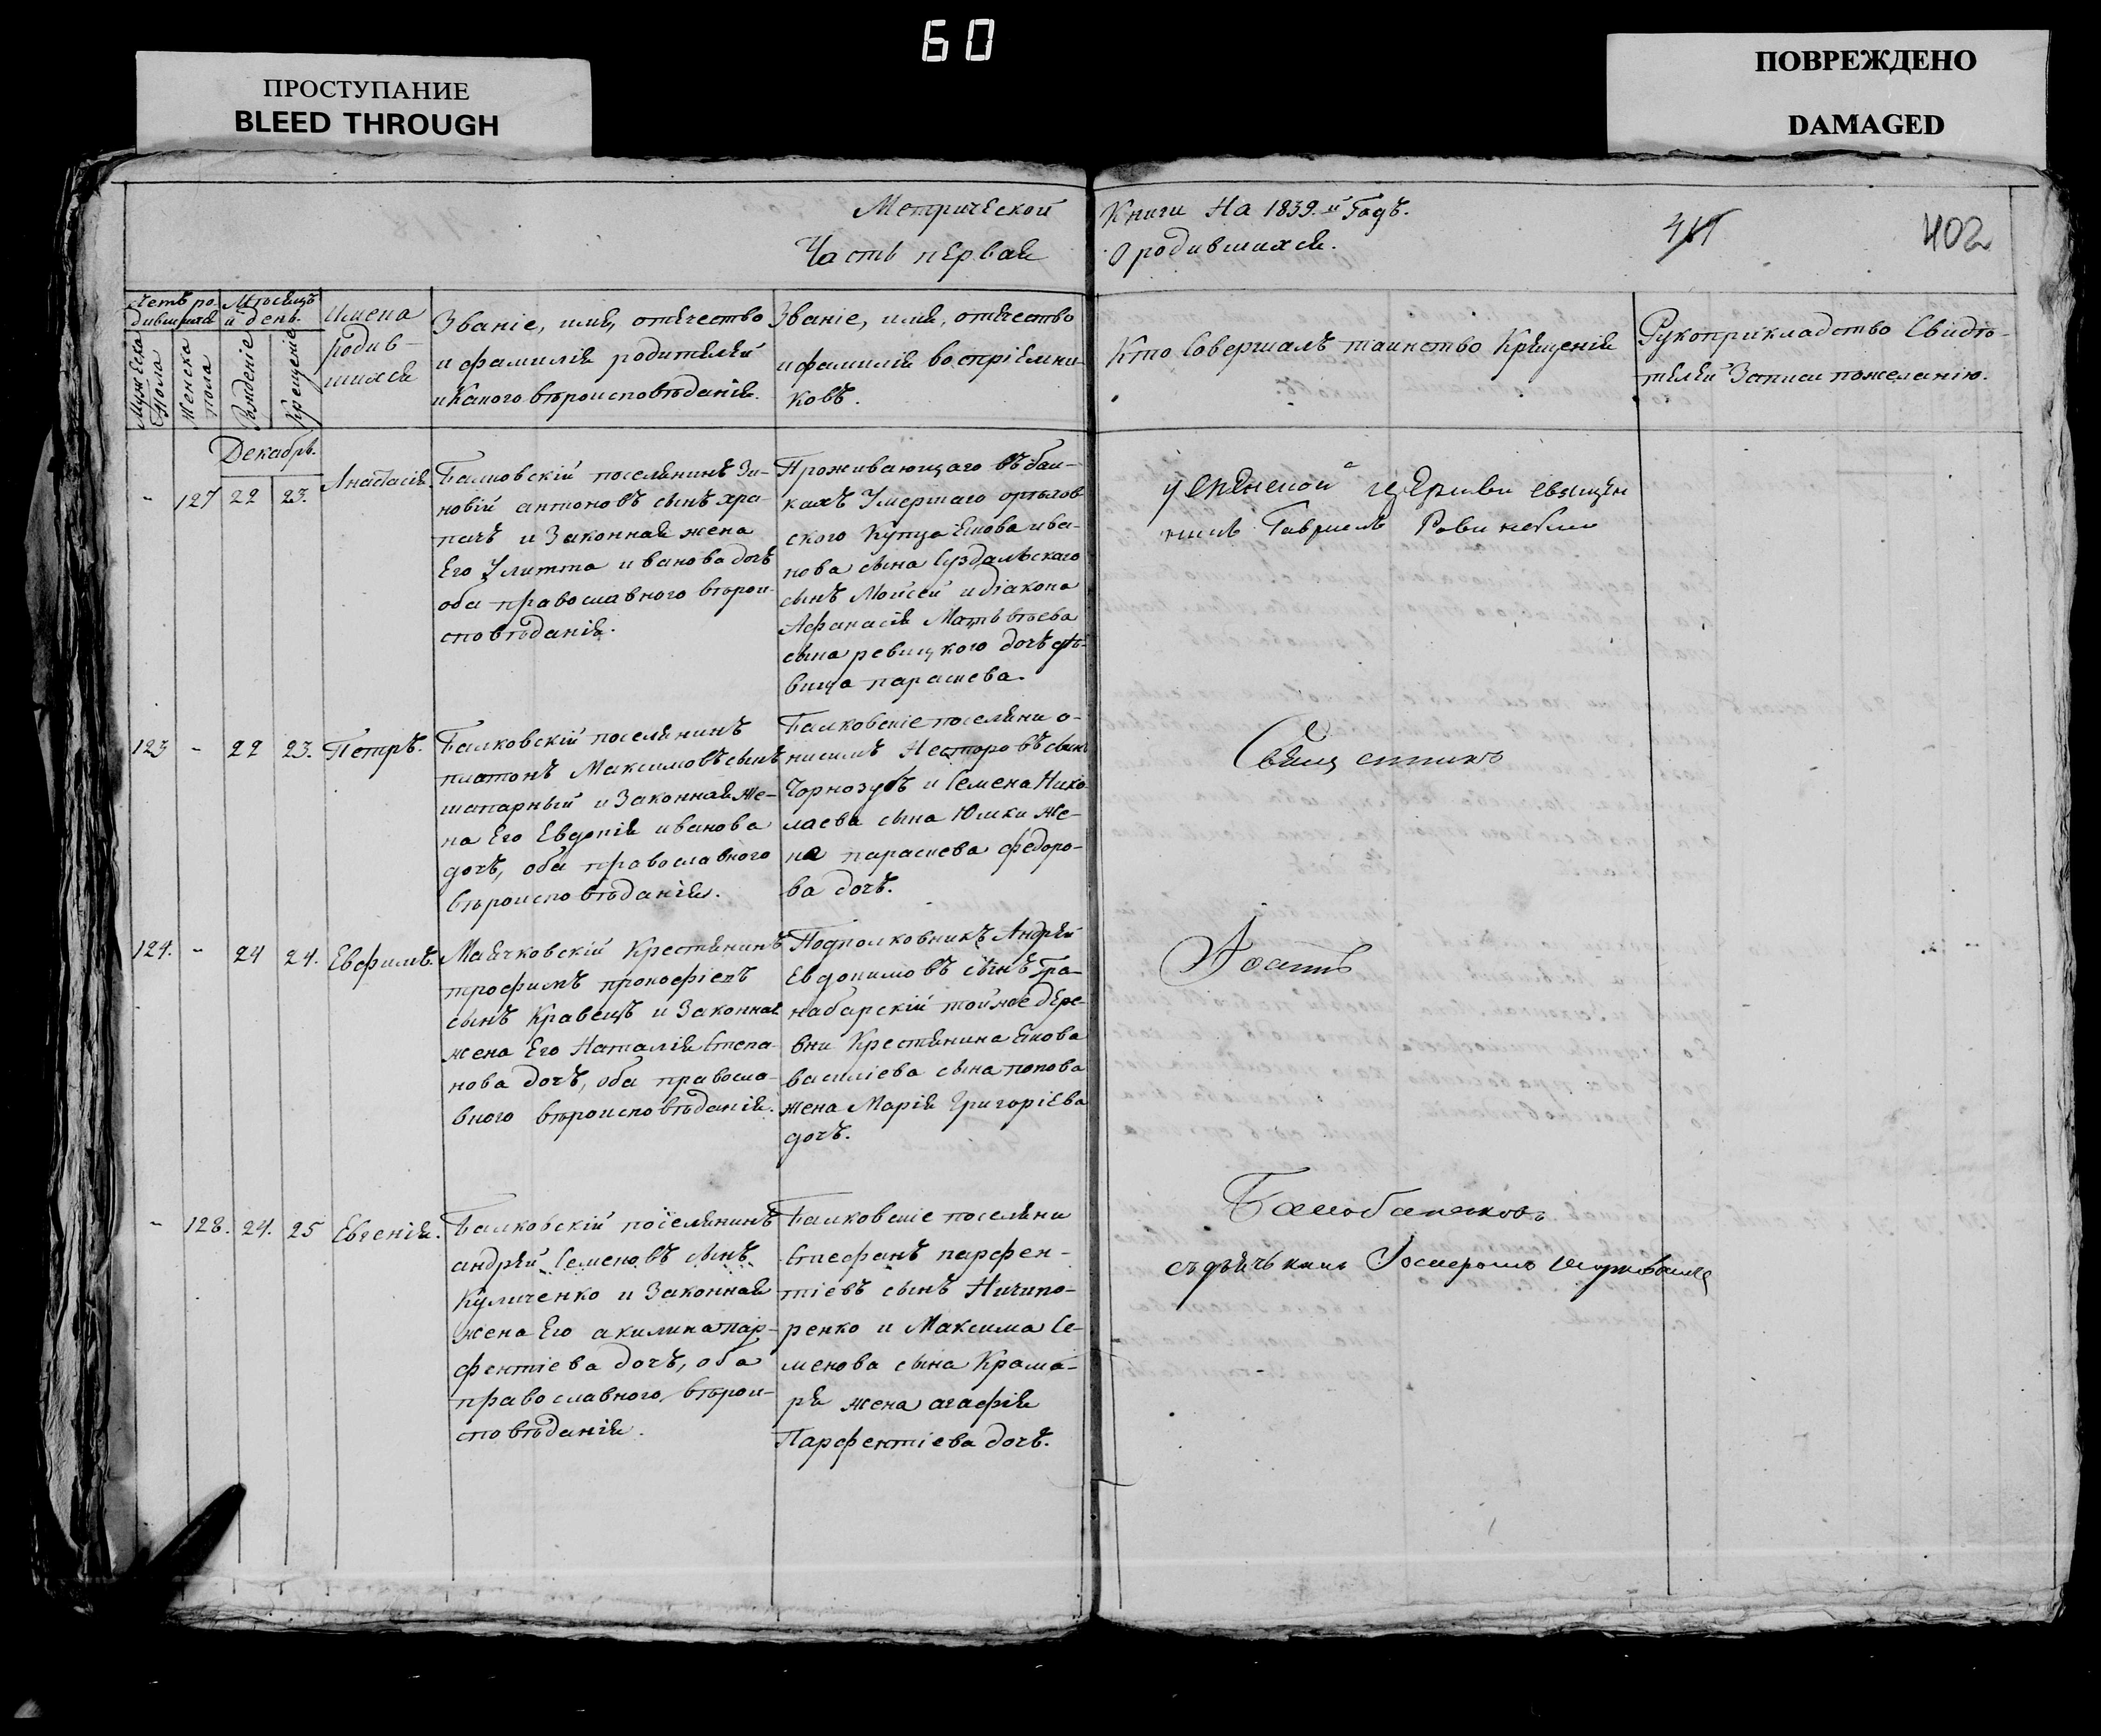 60
ПРОСТУПАНИЕ
BLEED THROUGH
ПОВРЕЖДЕНО
DAMAGED
Метрической
Часть первая
Книги На 1839.й Годъ.
О родившихся.
402
Четъ ро-
дившихся
Мужеска
Пола
Женска
пола
Мѣсяцъ
и день.
Рожденіе
Крещеніе
Имена
родив-
шихся
Званіе, имя, отечество
и фамилія родителей
и Какого вѣроисповѣданія.
Званіе, имя, отечество
и фамилія воспріемни-
ковъ.
Кто Совершалъ таинство Крещенія
Рукоприкладство Свидѣ-
телей Записи пожеланію.
Декабрь.
- 127 22 23.
Анастасія.
Балковскій поселянинъ Зи-
новій антоновъ сынъ хра-
пачъ и Законная жена
Его Улитта иванова дочь
оба православного вѣрои-
сповѣданія.
Проживающаго въ бал-
кахъ Умершаго
ского Купца Якова ива-
нова сына Суздальскаго
сынъ Моисей и діакона
Афанасія Матвѣева
сына ревицкого дочь дѣ-
вица параскева.
церкви священ
никъ Гавріилъ
123 - 22 23. Петръ.
Балковскій поселянинъ
платонъ Максимовъ сынъ
шапарный и Законная Же-
на Его Евдокія иванова
дочь, оба православного
вѣроисповѣданія.
Балковскіе поселяни о-
нисимъ Несторовъ сынъ
Чорнозубъ и Семена Нико-
лаева сына Юшки Же-
на параскева федоро-
ва дочь.
124. - 24 24. Евфимъ.
Маячковскій Крестянинъ
трофимъ прокофіевъ
сынъ Кравецъ и Законная
жена Его Наталія Степа-
нова дочь, оба правосла-
вного вѣроисповѣданія.
Подполковникъ Андрей
Евдокимовъ сынъ Гра-
набарскій той же дере-
вни Крестянина Якова
василіева сына попова
жена Марія Григоріева
дочь.
- 128. 24. 25 Евгенія.
Балковскій поселянинъ
андрей Семеновъ сынъ
Куличенко и Законная
жена Его акилина пар-
фентіева дочь, оба
православного вѣрои-
сповѣданія.
Балковскіе поселяни
Стефанъ парфен-
тіевъ сынъ Ничипо-
ренко и Максима Се-
менова сына Крама-
ря жена агафія
Парфентіева дочь.